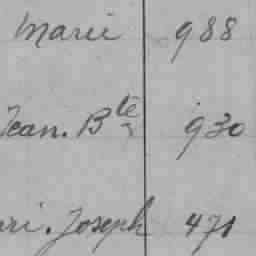 Marie 988
Jean. Bte 930
ri. Joseph 471